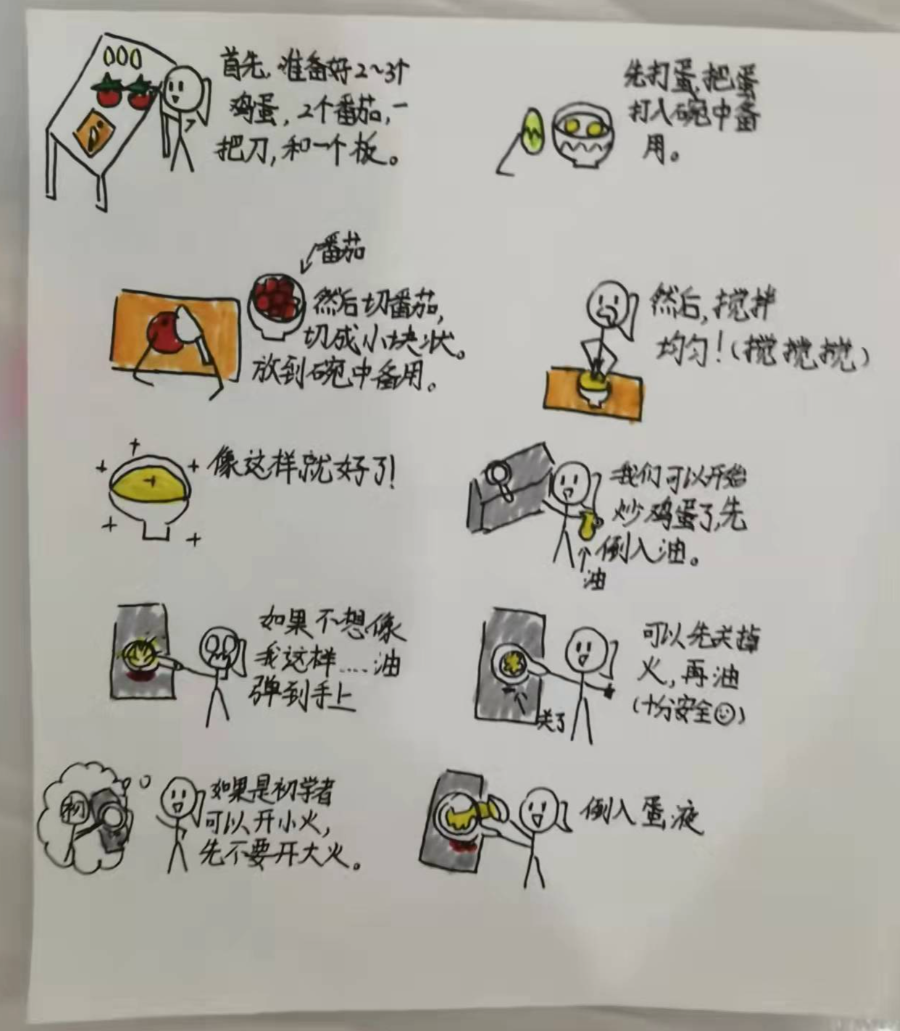 首先,准备好2~3个
鸡蛋,2个番茄,一
把刀,和一个板。
先打蛋,把蛋
打入碗中备
用。
番茄
然后切番茄,
切成小块状。
放到碗中备用。
然后,搅拌
均匀!(搅搅搅)
像这样就好了!
我们可以开始
炒鸡蛋了,先
倒入油。
油
如果不想像
我这样……油
弹到手上
可以先关掉
火,再油
(十分安全☺)
关了
初
如果是初学者
可以开小火,
先不要开大火。
倒入蛋液